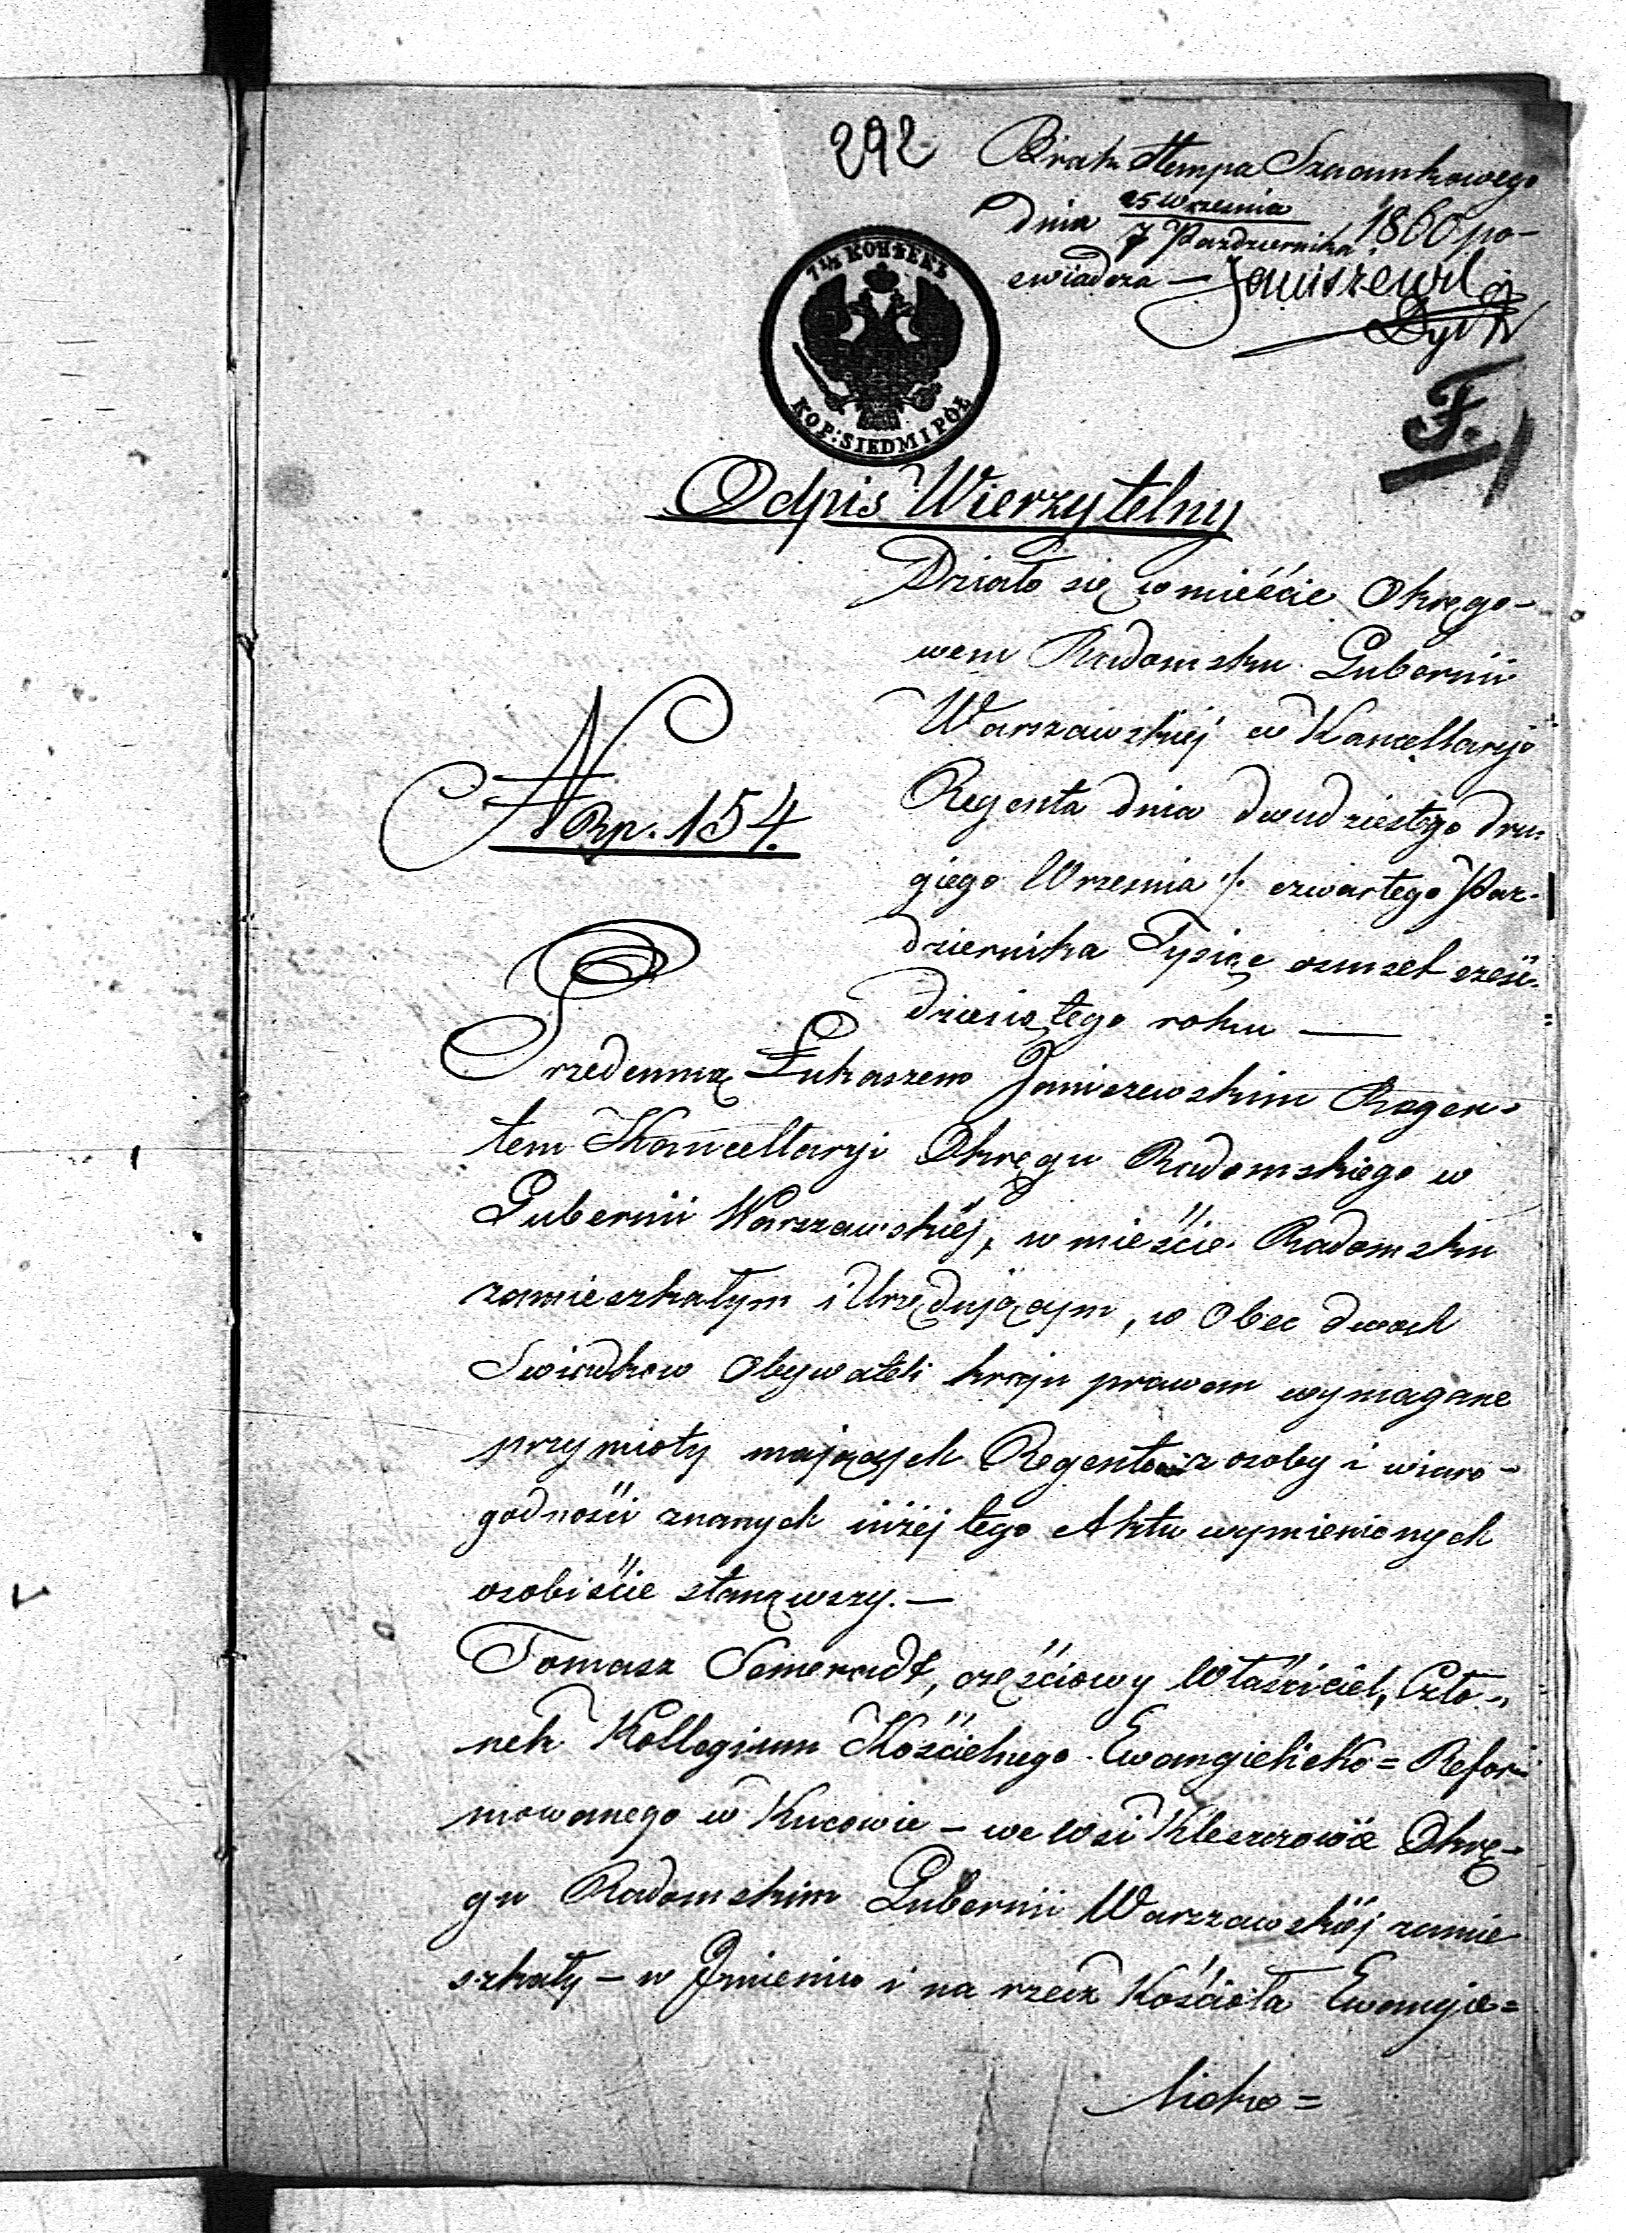 292
Brak stempa Szacunkowego
dnia 25 Września / 7 Października 1860 po-
swiadcza — Janiszewski
7½ КОПѢЕКЪ
KOP: SIEDM I PÓŁ
F.
Odpis Wierzytelny
Działo się w mieście Okręgo-
wem Radomsku Gubernii
Warszawskiej w Kancellaryi
Regenta dnia dwudziestego dru-
giego Września /. czwartego Paz-
dziernika Tysiąc osmset sześć-
dziesiątego roku —
N Rp. 154.
Przedemną Łukaszem Janiszewskim Regen-
tem Kancellaryi Okręgu Radomskiego w
Gubernii Warszawskiej, w mieście Radomsku
zamieszkałym i Urzędującym, w Obec dwóch
Swiadkow Obywateli kraju prawem wymagane
przymioty mających Regentowi z osoby i wiaro-
godności znanych niżej tego Aktu wymienionych
osobiście stanąwszy. —
Tomasz Semeradt, częściowy Właściciel, Czło-
nek Kollegium Kościelnego Ewangielicko = Refor-
mowanego w Kucowie — we wsi Kleszczowie Okrę-
gu Radomskim Gubernii Warszawskiej zamie
szkały — w Jmieniu i na rzecz Kościoła Ewangie=
licko=